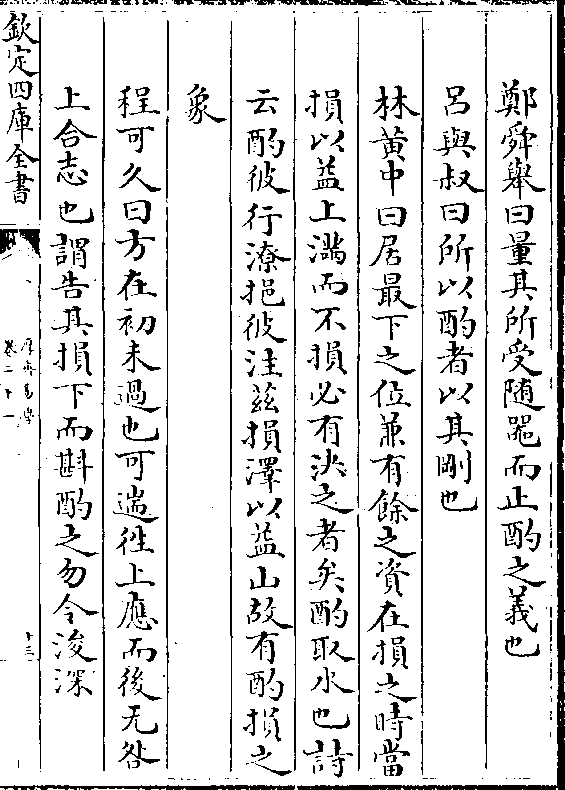 鄭舜舉曰量其所受随器而止酌之義也
呂與叔曰所以酌者以其剛也
林黄中曰居最下之位兼有餘之資在損之時當
損以益上滿而不損必有決之者矣酌取水也詩
云酌彼行潦挹彼注茲損澤以益山故有酌損之
象
程可久曰方在初未過也可遄徃上應而後无咎
上合志也謂告其損下而斟酌之勿令浚深
欽定四庫全書
厚齋易學
卷二十一
十三